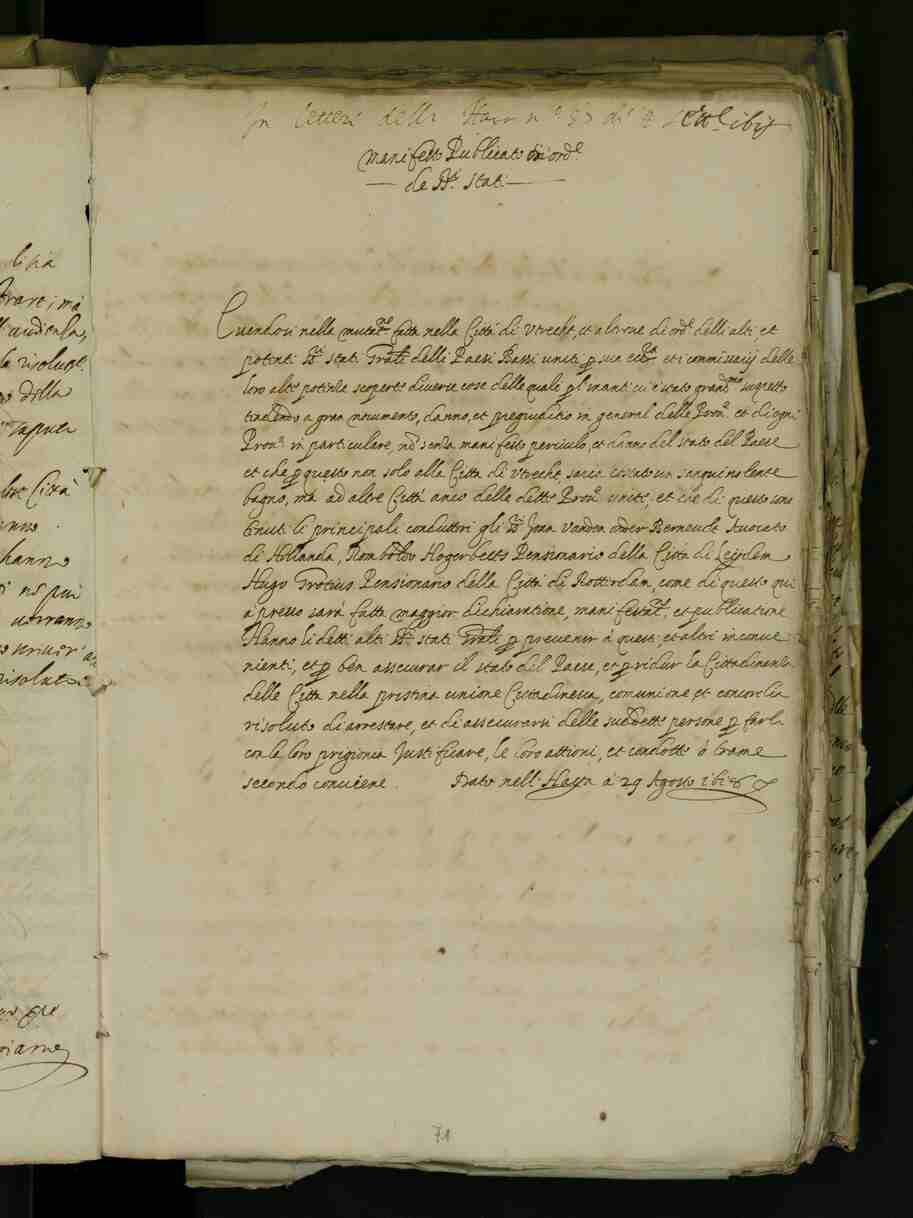 In lettera dell' Haya n.° di 4 sett.e 1618
manifesto Publicato di ord.e
de SS.ri Stati
Essendosi nella mutat.ne fatta nella Città di Utrecht, et alorue di ord.e delli alti, et
potenti SS.ri Stati Gñali delli Paesi Bassi uniti p sua ecc.za et i commissarij delle
loro alte potenze scoperte diverse cose delle quale p l'inanti vi è stato grand.mo suspetto
tendendo a gran nocumento, danno, et pregiuditio in general delle Prov.e et di ogni
Prov.a in particulare, nō senza manifesto periculo, et danno del stato del Paese
et che p questo non solo alla Città di Utrecht, saria costato un sanguinolente
bagno, mà ad altre Città anco delle dette Prov.e unite, et che di questo sono
tenuti li principali conduttori gli SS.ri Joan Vanden onder Berneuelt Auocato
di Hollanda, Rombolov Hogerbetts Pensionario della Città di Leijden
Hugo Grotius Pensionario della Città di Rotterdam, come di questo qui
apresso sarà fatta maggior dichiaratione, manifestat.e et publicatione
Hanno li detti alti SS.ri Stati Gñali p prevenir à questi et altri inconue
nienti, et p ben assecurar il stato del Paese, et p ridur la Cittadinanza
delle Città nella pristina unione Cittadinesca, comunione et concordia
risoluto di arrestare, et di assecurarsi delle sudette persone p farli
con la loro prigionia Justificare, le loro attioni, et condotte ò trame
secondo conviene. Dato nell' Haya a 29 Agosto 1618
71
lisia
udienza,
la risolut.e
della
saputa
altre Città
hanno
nō più